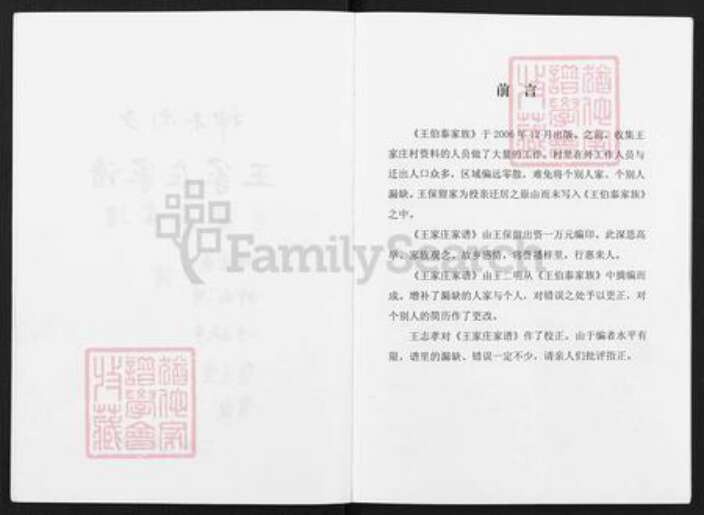 前言
《王伯泰家族》于2006年12月出版。之前，收集王
家庄村资料的人员做了大量的工作。村里在外工作人员与
迁出人口众多，区域偏远零散，难免将个别人家、个别人
漏缺。王保留家为投亲迁居之原由而未写入《王伯泰家族》
之中。
《王家庄家谱》由王保留出资一万元编印。此深恩高
厚，家族观念，故乡感情，将誉播梓里，行惠来人。
《王家庄家谱》由王二明从《王伯泰家族》中摘编而
成。增补了漏缺的人家与个人，对错误之处予以更正，对
个别人的简历作了更改。
王志孝对《王家庄家谱》作了校正。由于编者水平有
限，谱里的漏缺、错误一定不少，请亲人们批评指正。
FamilySearch